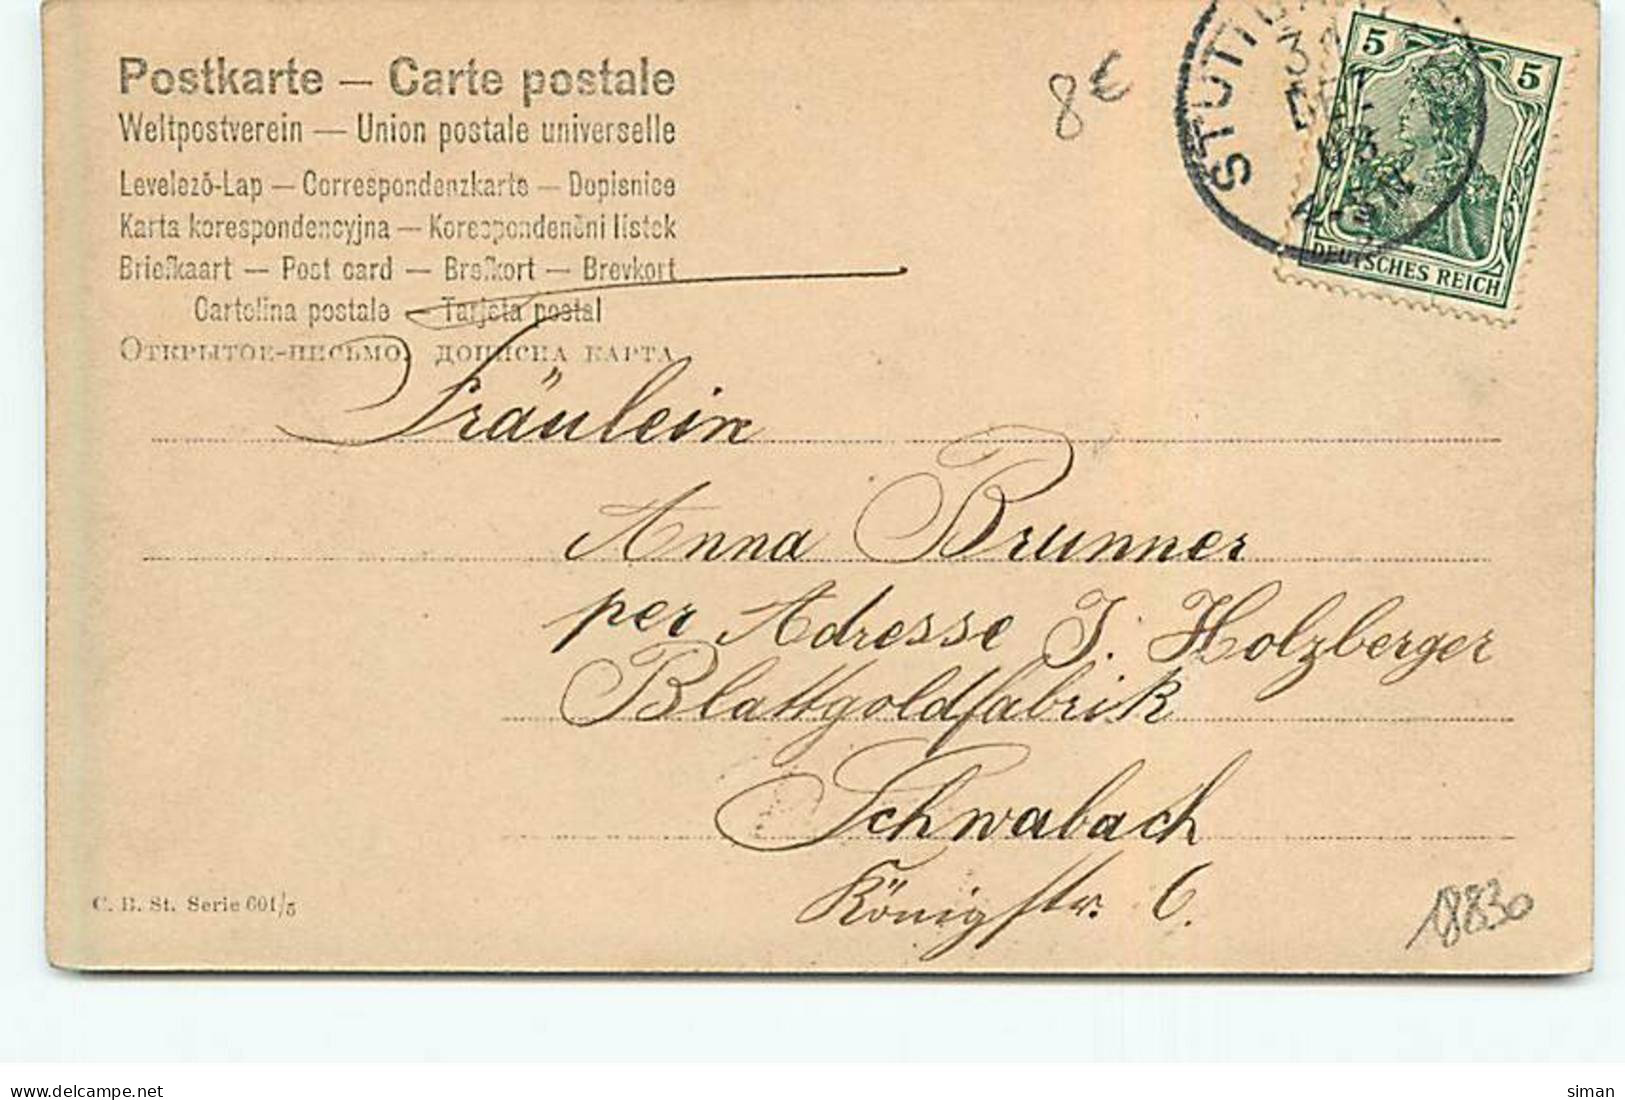 Postkarte — Carte postale
Weltpostverein — Union postale universelle
Levelező-Lap — Correspondenzkarte — Dopisnice
Karta korespondencyjna — Korespondenční lístek
Briefkaart — Post card — Brefkort — Brevkort
Cartolina postale — Tarjeta postal
Открытое-письмо, дописна карта
8€
5 5
DEUTSCHES REICH
Fräulein
Anna Brunner
per Adresse J. Holzberger
Blattgoldfabrik
Schwabach
Königstr. 6.
C. B. St. Serie 601/5
18830
delcampe.net
siman